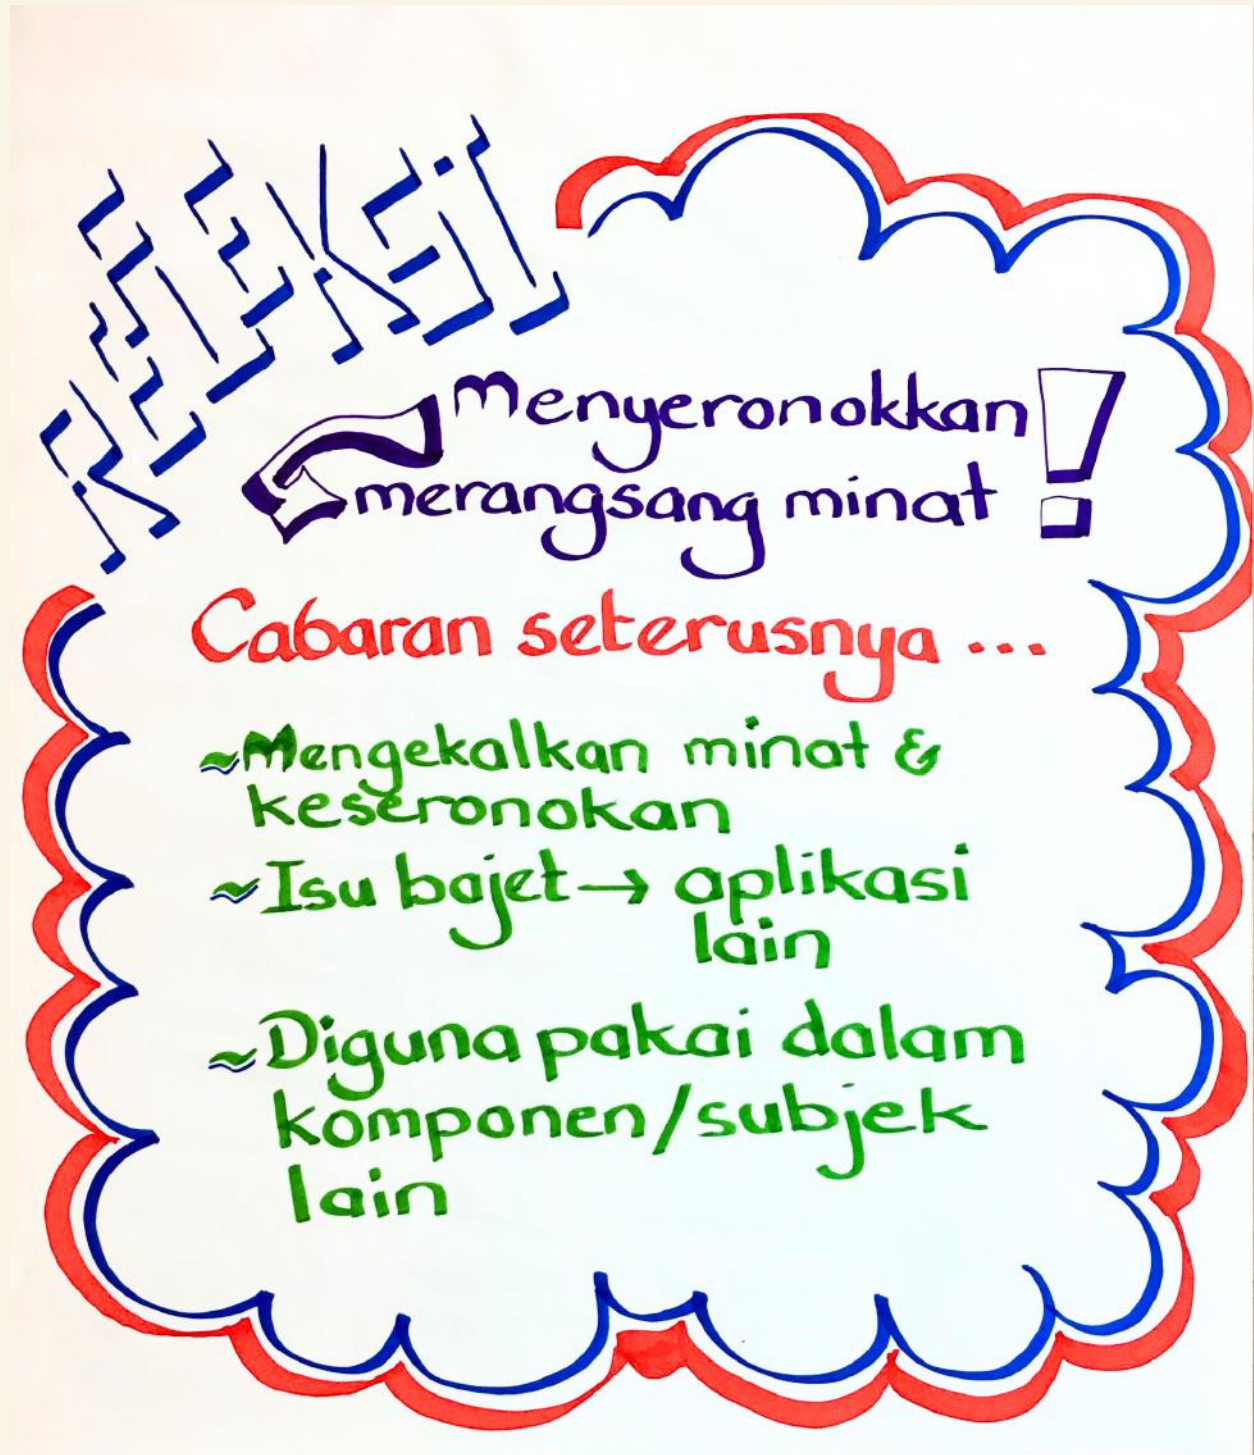 REFLEKSi
Menyeronokkan
merangsang minat !
Cabaran seterusnya ...
~Mengekalkan minat &
keseronokan
~Isu bajet→ aplikasi
lain
~Diguna pakai dalam
komponen/subjek
lain